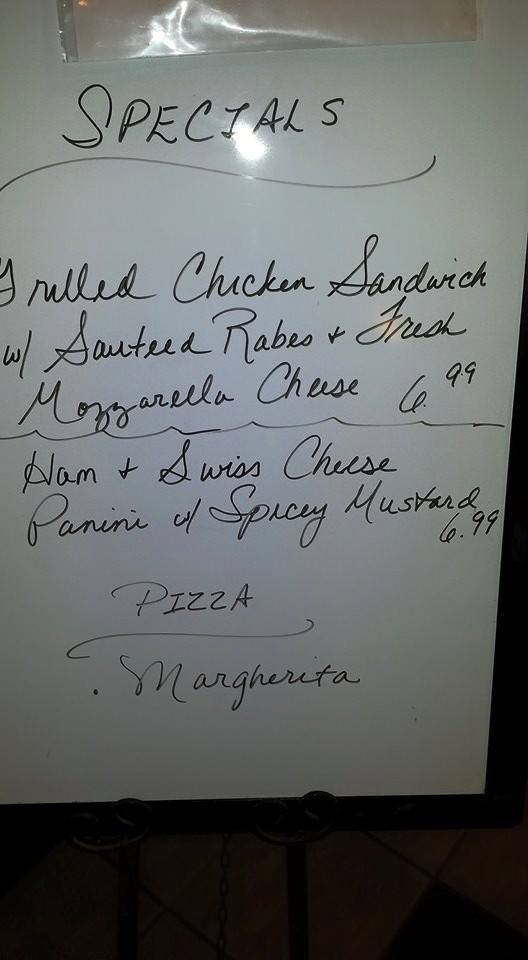 SPECIALS
Grilled Chicken Sandwich
w/ Sauteed Rabes + Fresh
Mozzarella Cheese 6.99
Ham + Swiss Cheese
Panini w/ Spicey Mustard
6.99
PIZZA
. Margherita